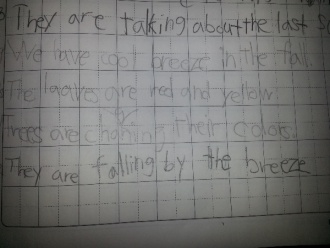 They are talking about the last
We have cool breeze in the fall.
The leaves are red and yellow.
Trees are changing their colors.
They are falling by the breeze